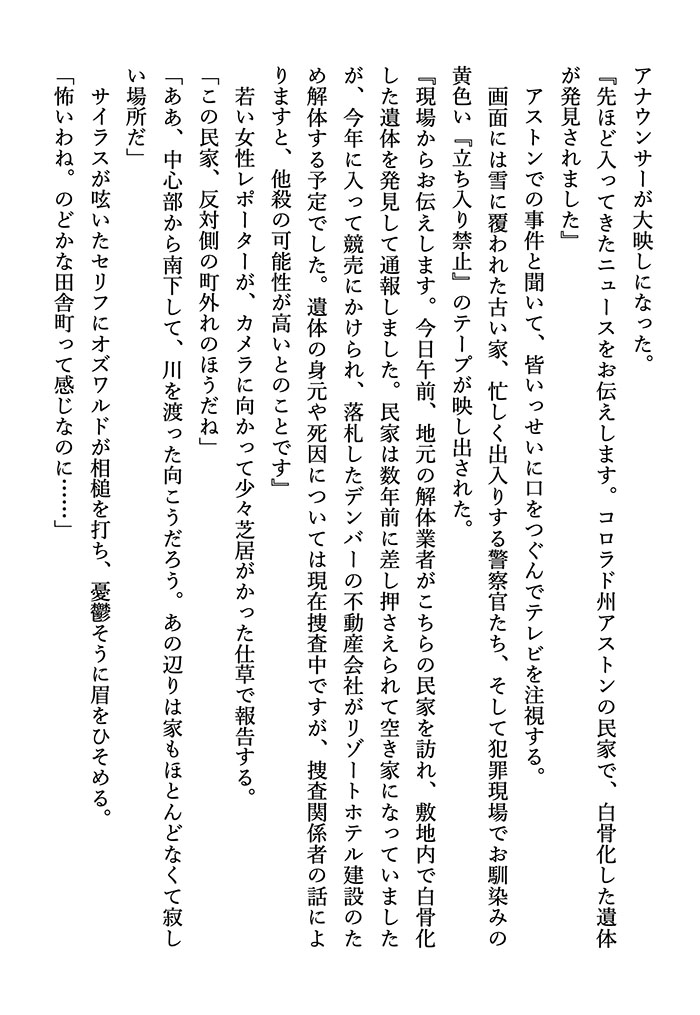 アナウンサーが大映しになった。
『先ほど入ってきたニュースをお伝えします。コロラド州アストンの民家で、白骨化した遺体
が発見されました』
アストンでの事件と聞いて、皆いっせいに口をつぐんでテレビを注視する。
画面には雪に覆われた古い家、忙しく出入りする警察官たち、そして犯罪現場でお馴染みの
黄色い『立ち入り禁止』のテープが映し出された。
『現場からお伝えします。今日午前、地元の解体業者がこちらの民家を訪れ、敷地内で白骨化
した遺体を発見して通報しました。民家は数年前に差し押さえられて空き家になっていました
が、今年に入って競売にかけられ、落札したデンバーの不動産会社がリゾートホテル建設のた
め解体する予定でした。遺体の身元や死因については現在捜査中ですが、捜査関係者の話によ
りますと、他殺の可能性が高いとのことです』
若い女性レポーターが、カメラに向かって少々芝居がかった仕草で報告する。
「この民家、反対側の町外れのほうだね」
「ああ、中心部から南下して、川を渡った向こうだろう。あの辺りは家もほとんどなくて寂し
い場所だ」
サイラスが呟いたセリフにオズワルドが相槌を打ち、憂鬱そうに眉をひそめる。
「怖いわね。のどかな田舎町って感じなのに……」